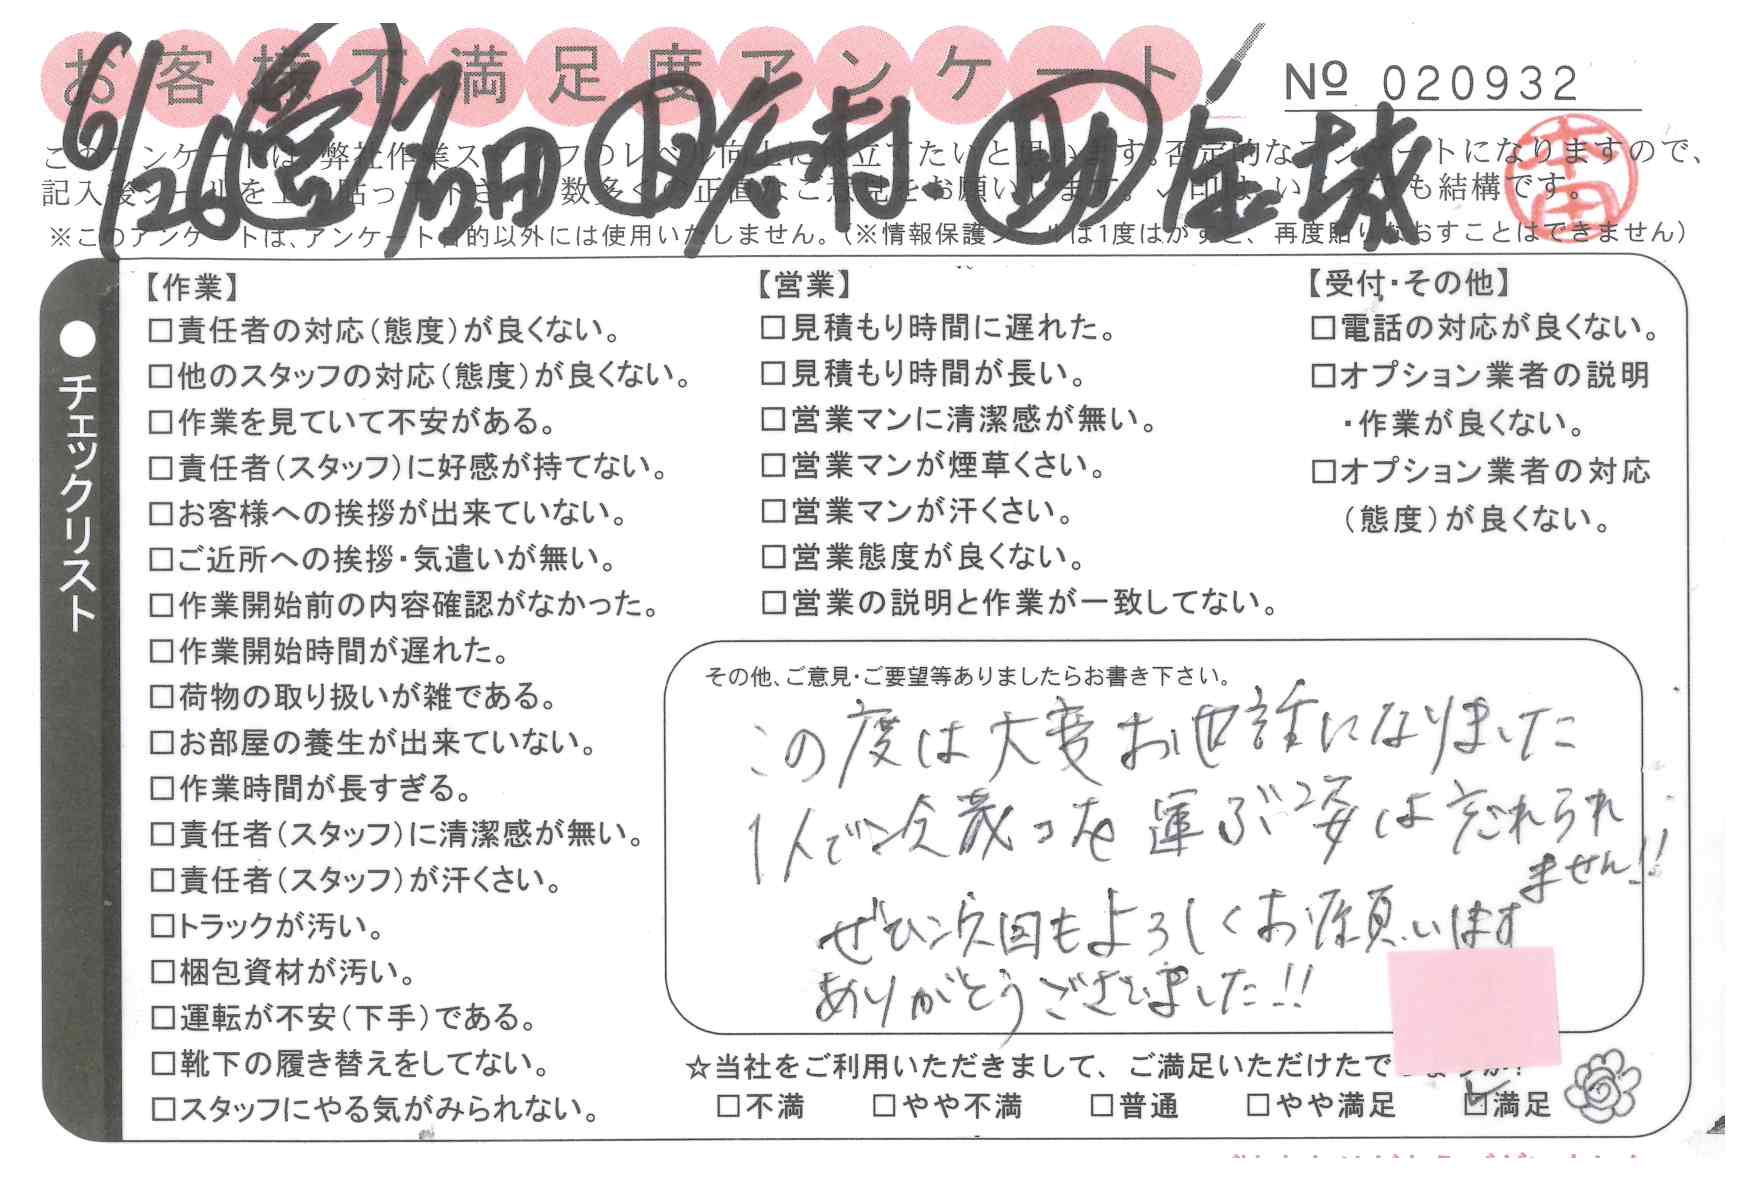 お客様不満足度アンケート
№ 020932
6/26 営 石田 助 金城
本田
このアンケートは、弊社作業スタッフのレベル向上に役立てたいと思います。否定的なアンケートになりますので、
記入後シールを上に貼って下さい。数多くの正直なご意見をお願いします。✓印はいくつでも結構です。
※このアンケートは、アンケート目的以外には使用いたしません。(※情報保護シールは1度はがすと、再度貼りなおすことはできません)
●チェックリスト
【作業】
□責任者の対応(態度)が良くない。
□他のスタッフの対応(態度)が良くない。
□作業を見ていて不安がある。
□責任者(スタッフ)に好感が持てない。
□お客様への挨拶が出来ていない。
□ご近所への挨拶・気遣いが無い。
□作業開始前の内容確認がなかった。
□作業開始時間が遅れた。
□荷物の取り扱いが雑である。
□お部屋の養生が出来ていない。
□作業時間が長すぎる。
□責任者(スタッフ)に清潔感が無い。
□責任者(スタッフ)が汗くさい。
□トラックが汚い。
□梱包資材が汚い。
□運転が不安(下手)である。
□靴下の履き替えをしてない。
□スタッフにやる気がみられない。
【営業】
□見積もり時間に遅れた。
□見積もり時間が長い。
□営業マンに清潔感が無い。
□営業マンが煙草くさい。
□営業マンが汗くさい。
□営業態度が良くない。
□営業の説明と作業が一致してない。
【受付・その他】
□電話の対応が良くない。
□オプション業者の説明
・作業が良くない。
□オプション業者の対応
(態度)が良くない。
その他、ご意見・ご要望等ありましたらお書き下さい。
この度は大変お世話になりました
1人で冷蔵コを運ぶ姿は忘れられ
ません!!
ぜひ次回もよろしくお願いします
ありがとうございました!!
☆当社をご利用いただきまして、ご満足いただけたで
□不満 □やや不満 □普通 □やや満足 ☑満足